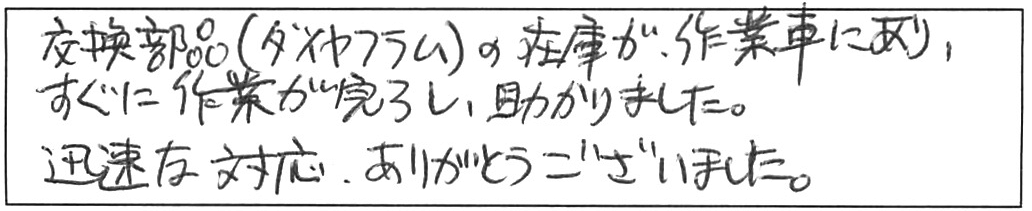 交換部品(ダイヤフラム)の在庫が、作業車にあり、
すぐに作業が完了し、助かりました。
迅速な対応、ありがとうございました。